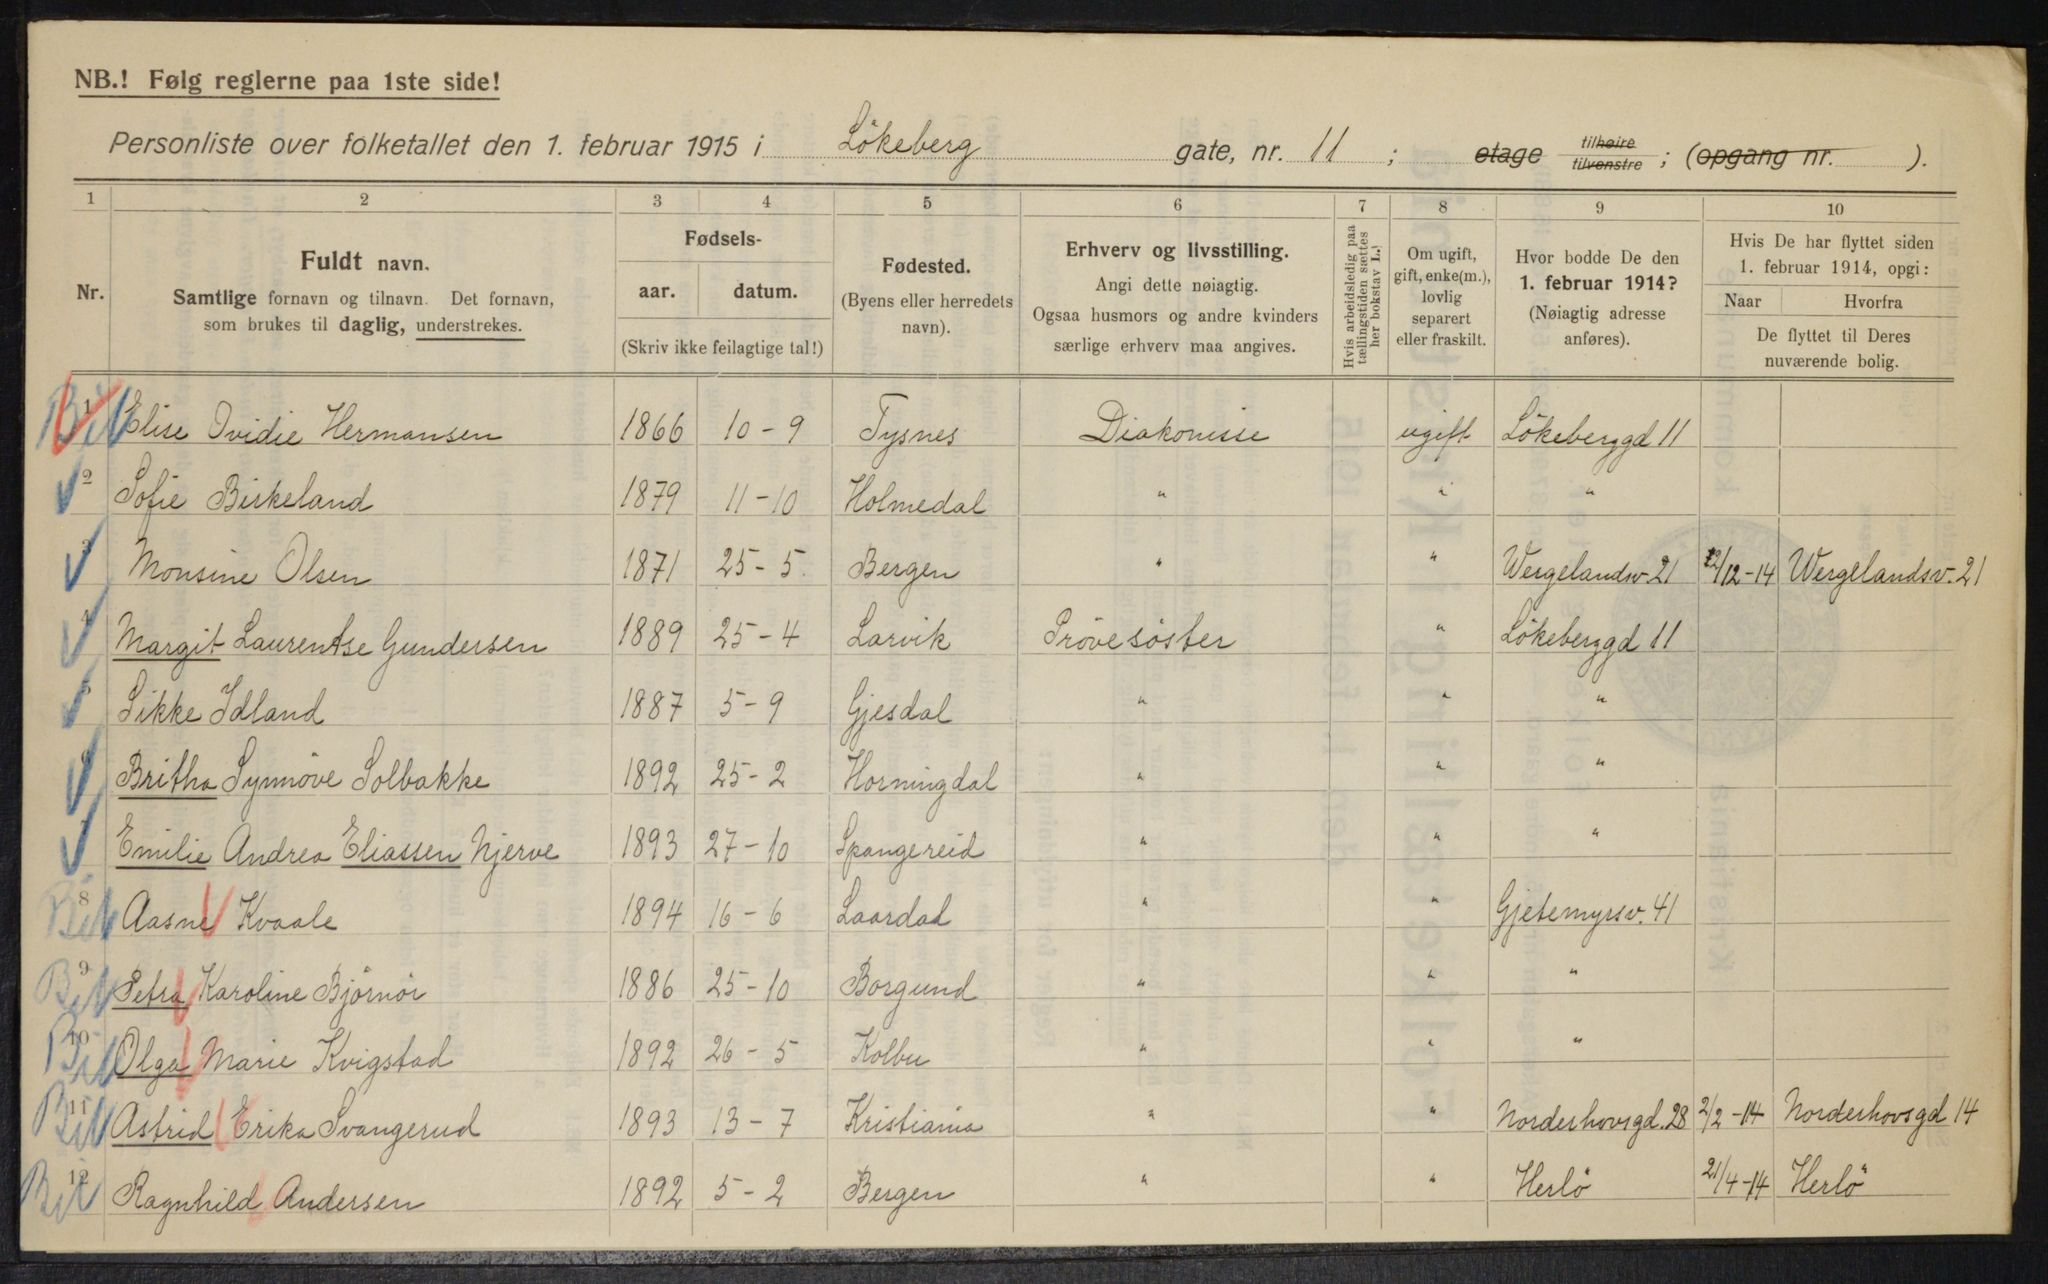 NB.! Følg reglerne paa 1ste side!
Personliste over folketallet den 1. februar 1915 i Lökeberg gate, nr. 11 ; etage tilhøire tilvenstre ; (opgang nr. ).
1 2 3 4 5 6 7 8 9 10
Nr.
Fuldt navn.
Samtlige fornavn og tilnavn. Det fornavn,
som brukes til daglig, understrekes.
Fødsels-
aar. datum.
(Skriv ikke feilagtige tal!)
Fødested.
(Byens eller herredets
navn).
Erhverv og livsstilling.
Angi dette nøiagtig.
Ogsaa husmors og andre kvinders
særlige erhverv maa angives.
Hvis arbeidsledig paa
tællingstiden sættes
her bokstav L.!
Om ugift,
gift, enke(m.),
lovlig
separert
eller fraskilt.
Hvor bodde De den
1. februar 1914?
(Nøiagtig adresse
anføres).
Hvis De har flyttet siden
1. februar 1914, opgi:
Naar Hvorfra
De flyttet til Deres
nuværende bolig.
1 Elise Ovidie Hermansen 1866 10-9 Tysnes Diakonisse ugift Lökeberggd 11
2 Sofie Birkeland 1879 11-10 Holmedal " " "
3 Monsine Olsen 1871 25-5. Bergen " " Wergelandsv. 21 /12-14 Wergelandsv. 21
4 Margit Laurentse Gundersen 1889 25-4 Larvik Prövesöster " Lökeberggd 11
5 Sikke Idland 1887 5-9 Gjesdal " " "
6 Britha Synnöve Solbakke 1892 25-2 Horningdal " " "
7 Emilie Andrea Eliassen Njerve 1893 27-10 Spangereid " " "
8 Aasne Kvaale 1894 16-6 Laardal " " Gjetemyrsv. 41
9 Petra Karoline Björnör 1886 25-10 Borgund " " "
10 Olga Marie Kvigstad 1892 26-5 Kolbu " " "
11 Astrid Erika Svangerud 1893 13-7 Kristiania " " Norderhovsgd. 28 2/2-14 Norderhovsgd 14
12 Ragnhild Andersen 1892 5-2 Bergen " " Herlö 21/4-14 Herlö